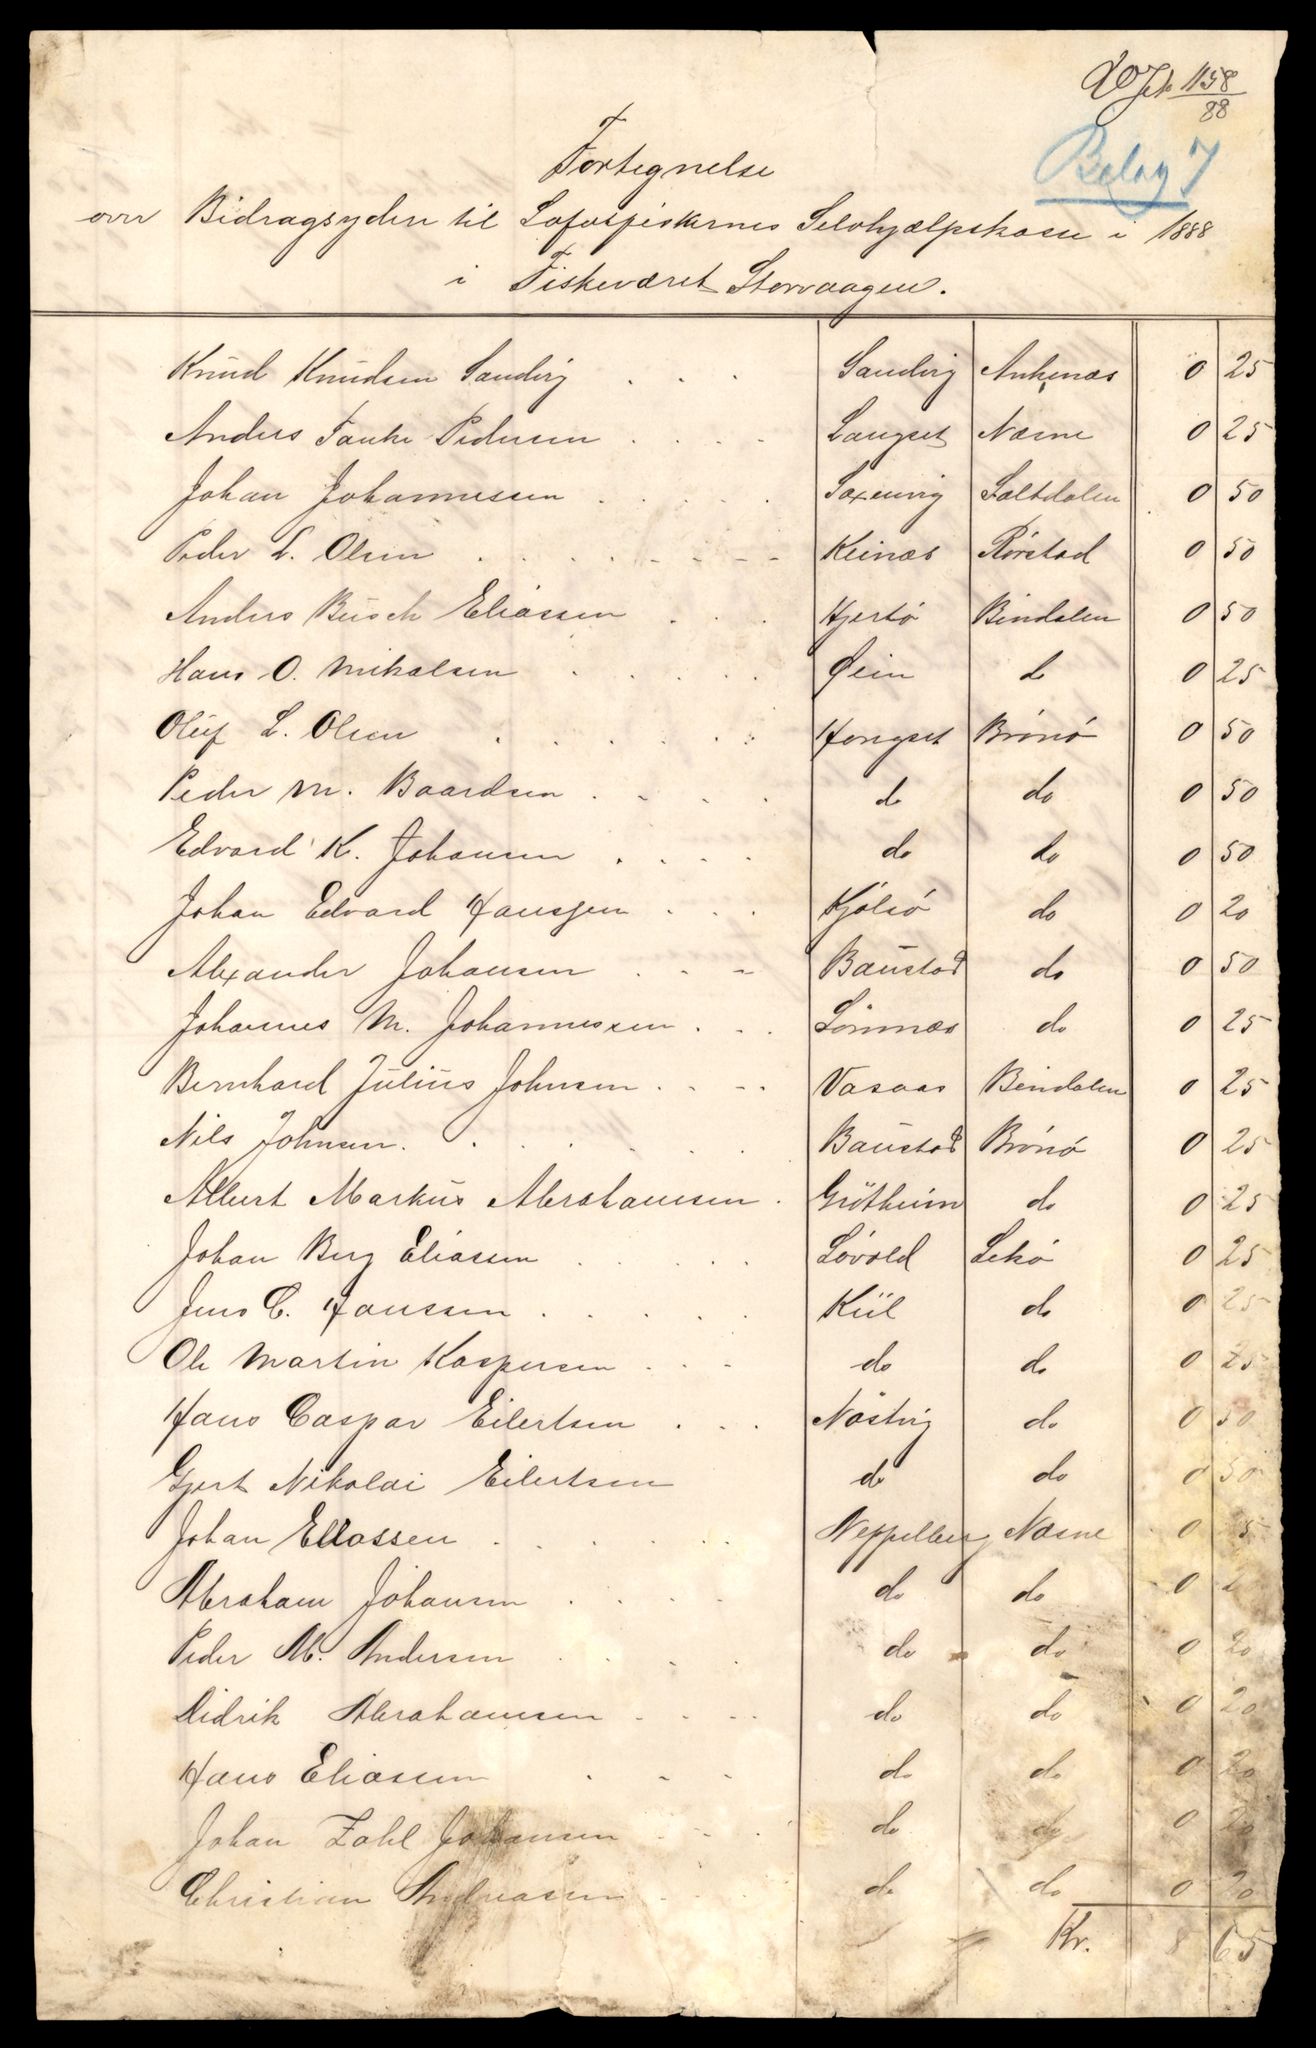 1158
88
Belag 7
Fortegnelse
over Bidragsydere til Lofotfiskernes Selvhjælpskasse i 1888
i Fiskeværet Storvaagen.
Knud Knudsen Sandvig . . . Sandvig Ankenæs 0 25
Anders Fanke Pedersen . . . . Langset Næsne 0 25
Johan Johannessen . . . . . Saxenvig Saltdalen 0 50
Peder L. Olsen . . . . . . . Keinæs Rørstad 0 50
Anders Busch Eliassen . . . Hjertö Bindalen 0 50
Hans O. Mikalsen . . . . . Øein do 0 25
Oluf L. Olsen . . . . . . Hongset Brönö 0 50
Peder M. Baardsen . . . . do do 0 50
Edvard K. Johansen . . . . do do 0 50
Johan Edvard Hanssen . . . Kjölsö do 0 20
Alexander Johansen . . . Baustad do 0 50
Johannes M. Johannessen . . . Sömnæs do 0 25
Bernhard Julius Johnsen . . . . Vasaas Bindalen 0 25
Nils Johnsen . . . . . . Baustad Brönö 0 25
Albert Markus Abrahamsen . Grötheim do 0 25
Johan Berg Eliassen . . . . . Sövold Lekö 0 25
Jens C. Hanssen . . . . . Kiil do 0 25
Ole Martin Kaspersen . . . do do 0 25
Hans Caspar Eilertsen . . . Nöstvig do 0 50
Gjert Nikolai Eilertsen do do 0 50
Johan Eliassen . . . . . . Neppelberg Næsne 0 5
Abraham Johansen . . . . do do 0 2
Peder M. Andersen . . . . do do 0 20
Didrik Abrahamsen . . . . do do 0 20
Hans Eliassen . . . do do 0 20
Johan Zahl Johansen . . . do do 0 20
Christian Andreasen . . . do do 0 20
Kr. 8 65